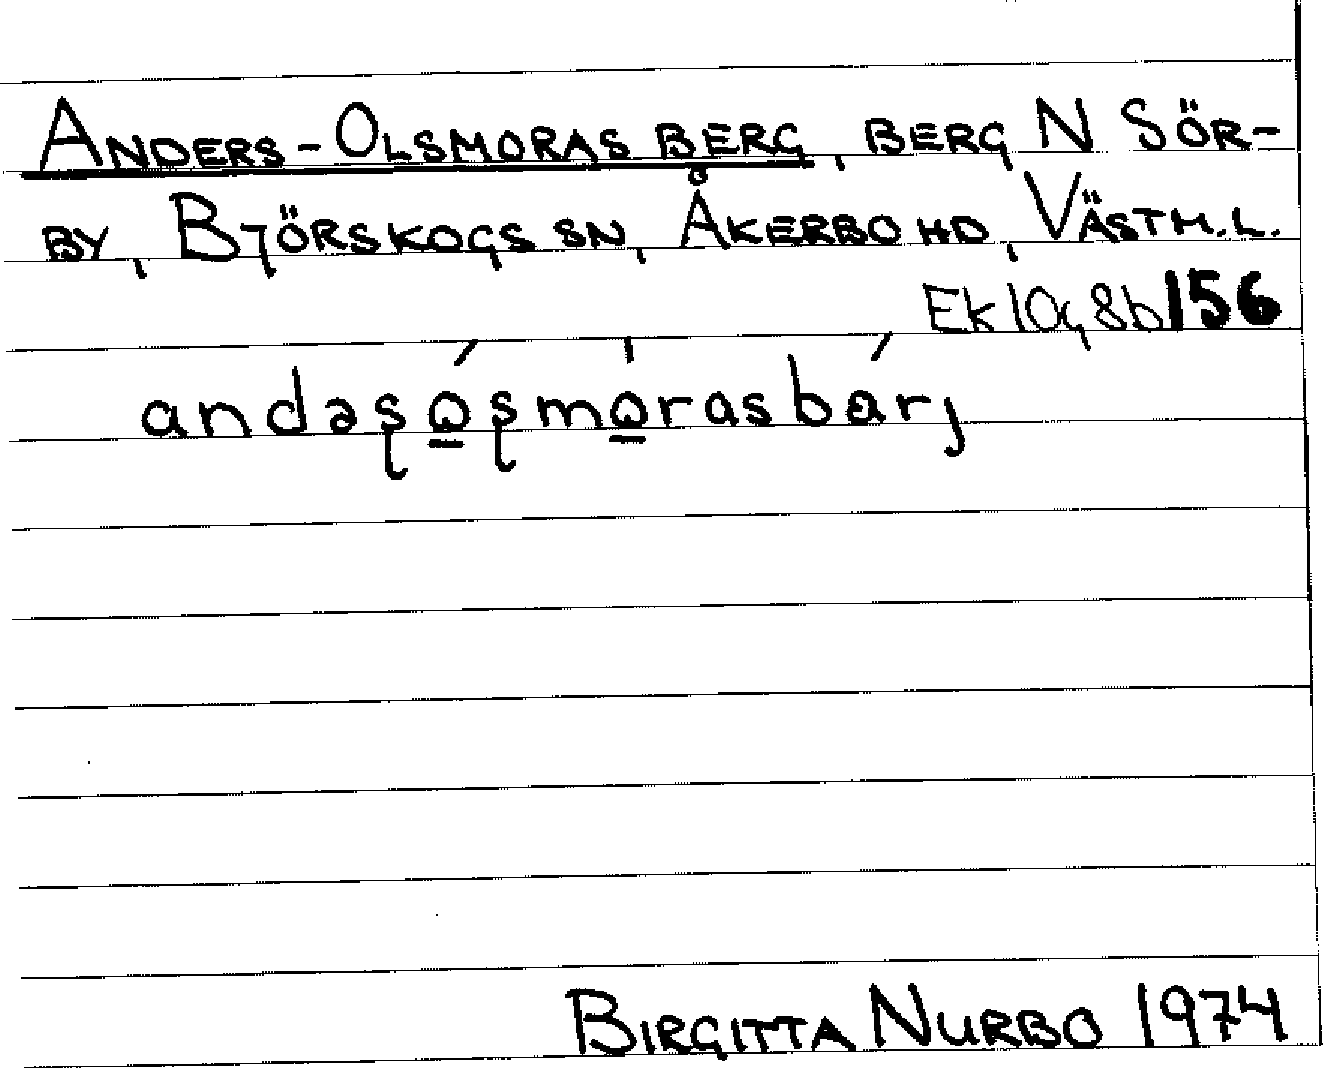 Anders-Olsmoras berg, berg N Sör-
by, Björskogs sn, Åkerbo hd, Västm.l.
Ek 10g8b 156
andəʂo̲ʂmo̲rasbarj
Birgitta Nurbo 1974